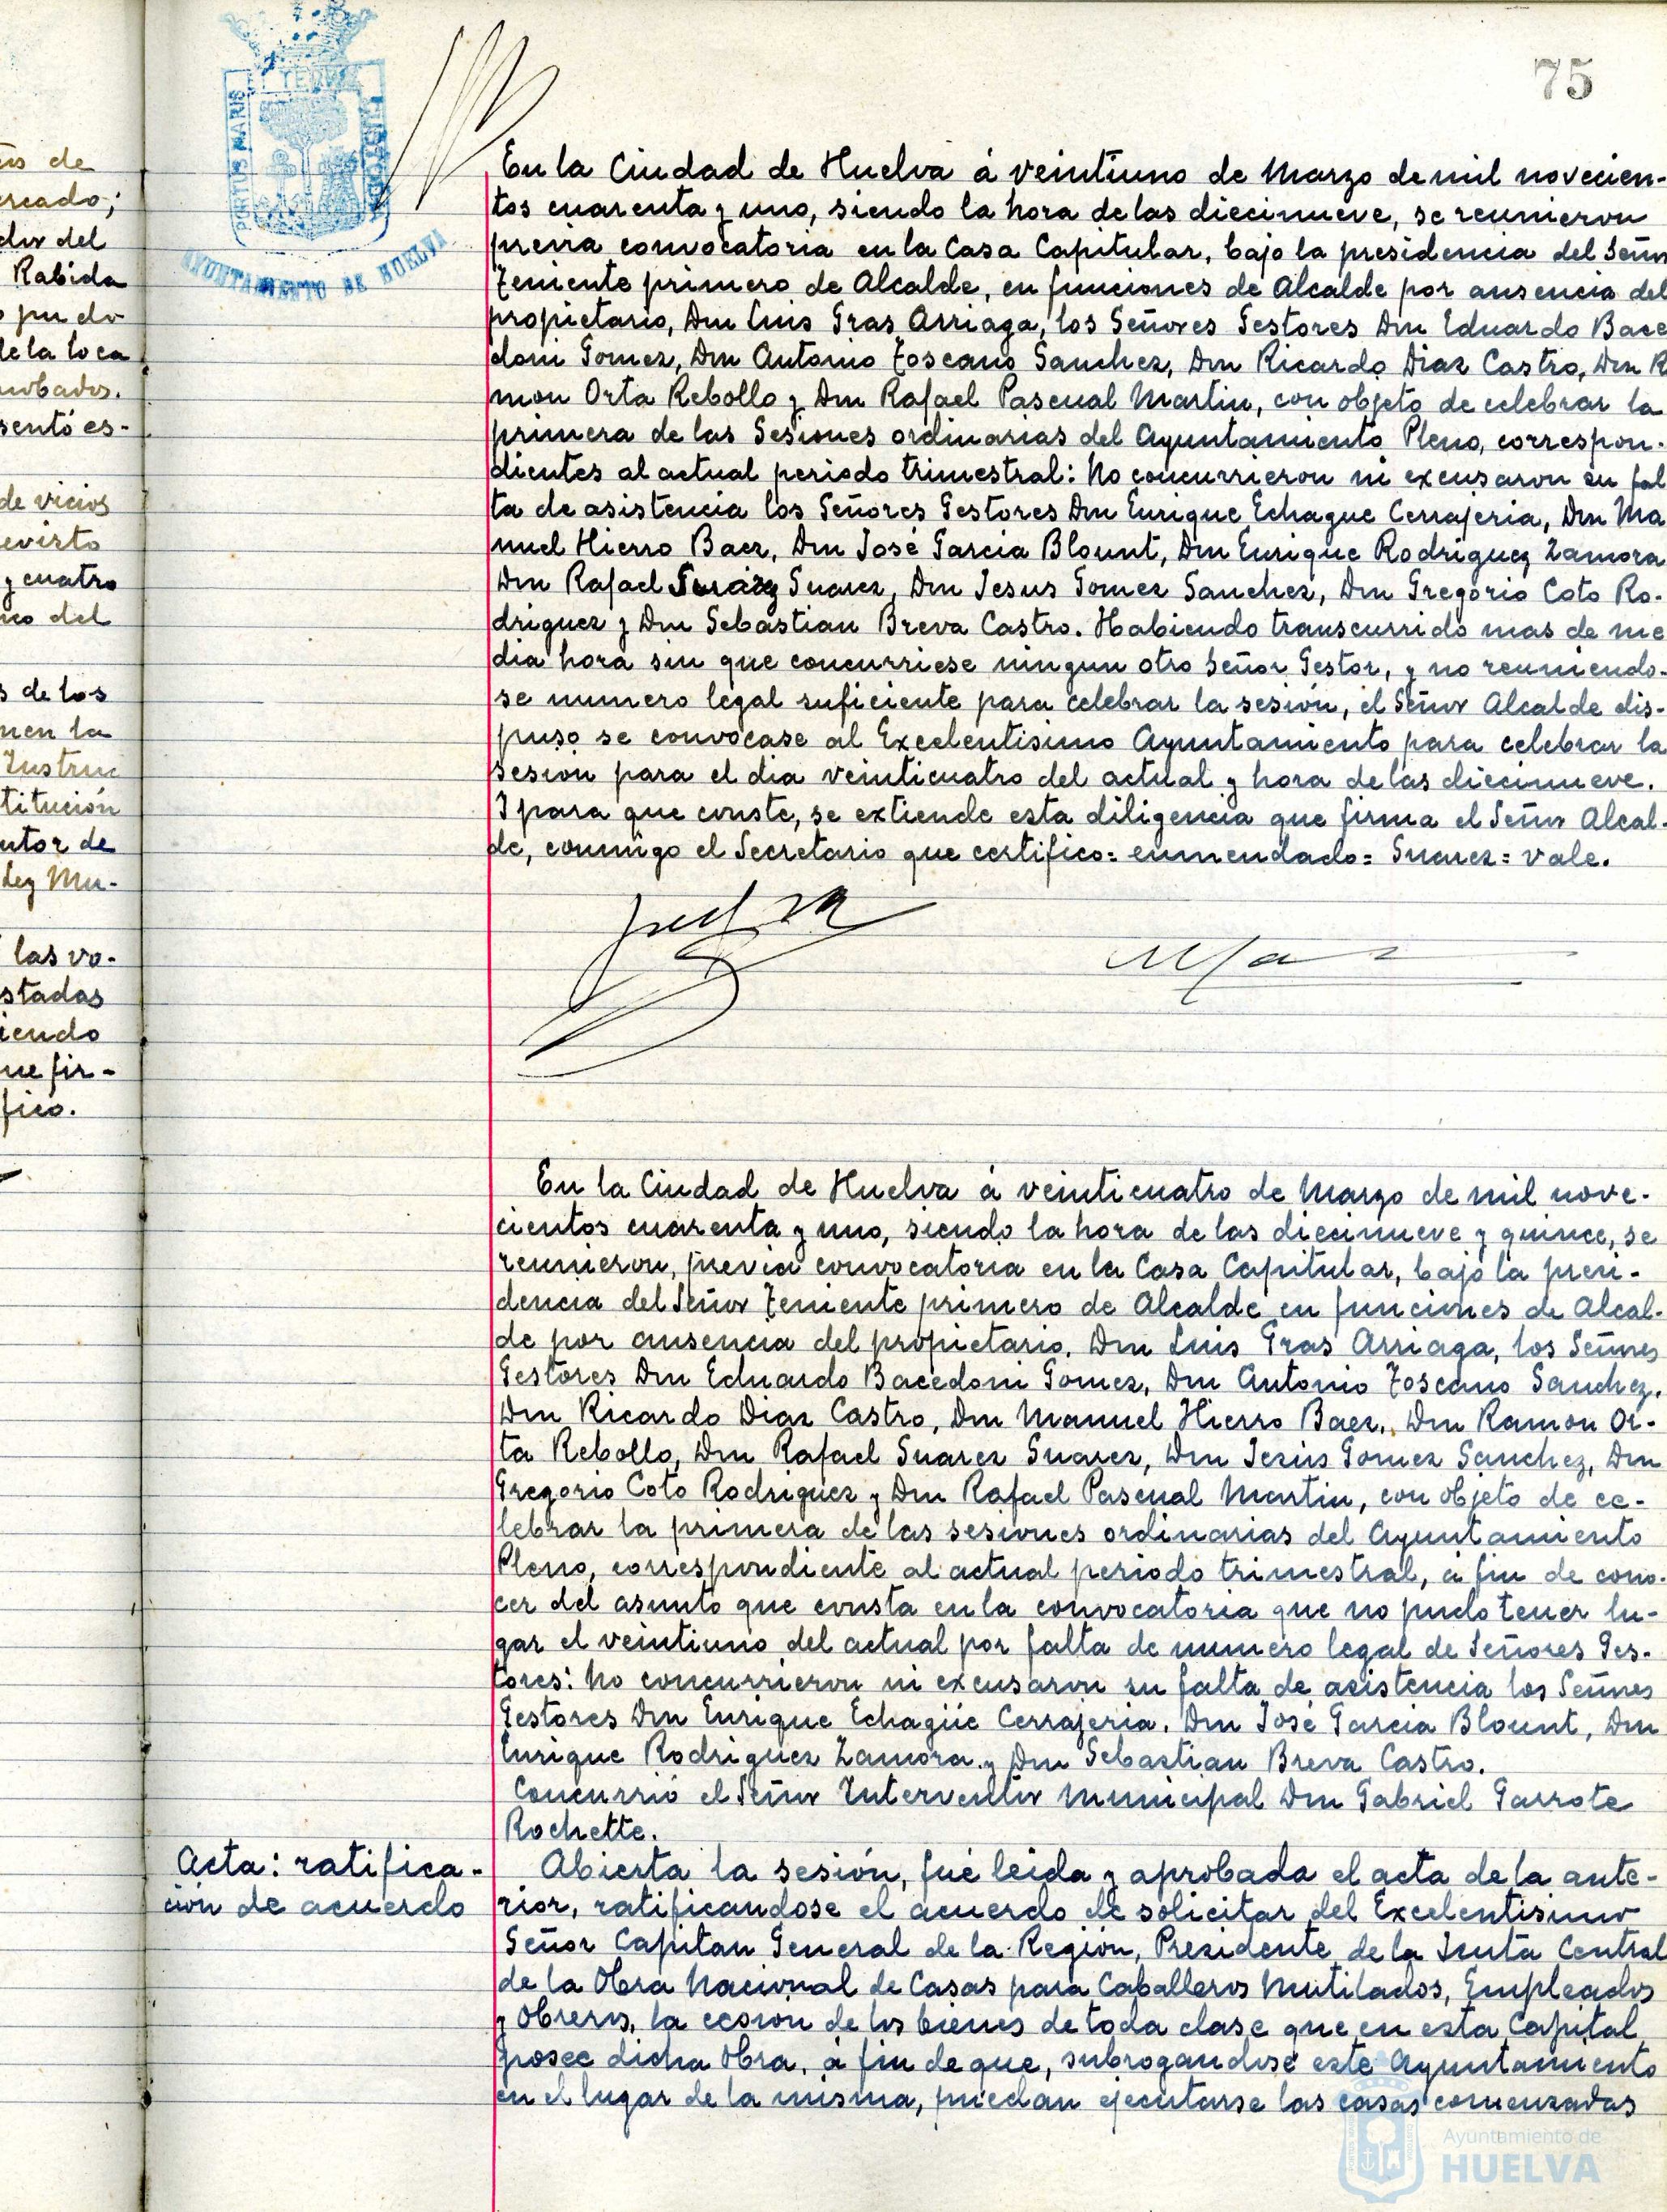 75
PORTUS MARIS ET TERRAE CUSTODIA
AYUNTAMIENTO DE HUELVA
de
ercado;
del
Rabida
pudo
de la loca
sentó es-
de vicios
evisto
y cuatro
del
s de los
nen la
Instruc
titución
utor de
Ley Mu-
las vo-
stadas
iendo
ue fir-
fico.
En la Ciudad de Huelva á veintiuno de Marzo de mil novecien-
tos cuarenta y uno, siendo la hora de las diecinueve, se reunieron
previa convocatoria en la Casa Capitular, bajo la presidencia del Señor
Teniente primero de Alcalde, en funciones de Alcalde por ausencia del
propietario, Don Luis Gras Arriaga, los Señores Gestores Don Eduardo Bace
doni Gomez, Don Antonio Toscano Sanchez, Don Ricardo Diaz Castro, Don R
mon Orta Rebollo y Don Rafael Pascual Martin, con objeto de celebrar la
primera de las Sesiones ordinarias del Ayuntamiento Pleno, correspon-
dientes al actual periodo trimestral: No concurrieron ni excusaron su fal
ta de asistencia los Señores Gestores Don Enrique Echague Cerrajeria, Don Ma
nuel Hierro Baez, Don José Garcia Blount, Don Enrique Rodriguez Zamora
Don Rafael Suarez Suarez, Don Jesus Gomez Sanchez, Don Gregorio Coto Ro-
driguez y Don Sebastian Breva Castro. Habiendo transcurrido mas de me
dia hora sin que concurriese ningun otro Señor Gestor, y no reuniendo-
se numero legal suficiente para celebrar la sesión, el Señor Alcalde dis-
puso se convocase al Excelentisimo Ayuntamiento para celebrar la
sesion para el dia veinticuatro del actual y hora de las diecinueve.
Y para que conste, se extiende esta diligencia que firma el Señor Alcal-
de, conmigo el Secretario que certifico= enmendado= Suarez= vale.
En la Ciudad de Huelva á veinticuatro de Marzo de mil nove-
cientos cuarenta y uno, siendo la hora de las diecinueve y quince, se
reunieron, previa convocatoria en la Casa Capitular, bajo la presi-
dencia del Señor Teniente primero de Alcalde en funciones de Alcal-
de por ausencia del propietario, Don Luis Gras Arriaga, los Señores
Gestores Don Eduardo Bacedoni Gomez, Don Antonio Toscano Sanchez,
Don Ricardo Diaz Castro, Don Manuel Hierro Baez, Don Ramon Or-
ta Rebollo, Don Rafael Suarez Suarez, Don Jesús Gomez Sanchez, Don
Gregorio Coto Rodriguez y Don Rafael Pascual Martin, con objeto de ce-
lebrar la primera de las sesiones ordinarias del Ayuntamiento
Pleno, correspondiente al actual periodo trimestral, á fin de cono-
cer del asunto que consta en la convocatoria que no pudo tener lu-
gar el veintiuno del actual por falta de numero legal de Señores Ges-
tores: No concurrieron ni excusaron su falta de asistencia los Señores
Gestores Don Enrique Echagüe Cerrajeria, Don José Garcia Blount, Don
Enrique Rodriguez Zamora y Don Sebastian Breva Castro.
Concurrió el Señor Interventor Municipal Don Gabriel Garrote
Rochette.
Acta: ratifica-
ción de acuerdo
Abierta la sesión, fué leida y aprobada el acta de la ante-
rior, ratificandose el acuerdo de solicitar del Excelentisimo
Señor Capitan General de la Región, Presidente de la Junta Central
de la Obra Nacional de Casas para Caballeros Mutilados, Empleados
y Obreros, la cesion de los bienes de toda clase que en esta Capital
posee dicha Obra, á fin de que, subrogandose este Ayuntamiento
en el lugar de la misma, puedan ejecutarse las casas comenzadas
Ayuntamiento de
HUELVA